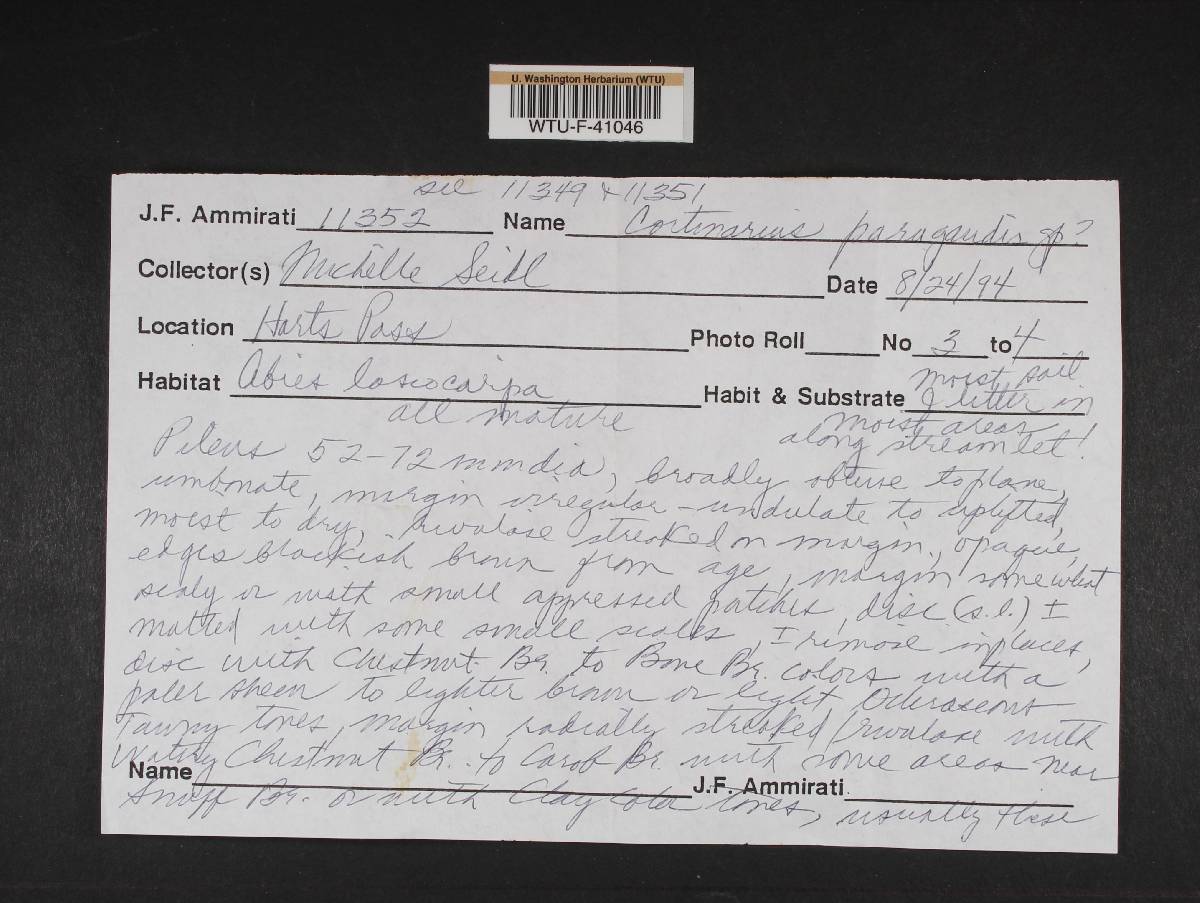 U. Washington Herbarium (WTU)
WTU-F-41046
see 11349 + 11351
J.F. Ammirati 11352 Name Cortinarius paragaudis gp?
Collector(s) Michelle Seidl Date 8/24/94
Location Harts Pass Photo Roll No 3 to 4
Habitat Abies lasiocarpa Habit & Substrate moist soil
& litter in
moist areas
along streamlet!
all mature
Pileus 52-72 mm dia, broadly obtuse to plane,
umbonate, margin irregular - undulate to uplifted,
moist to dry, rivulose streaked on margin, opaque,
edges blackish brown from age, margin somewhat
scaly or with small appressed patches, disc (s.l.) ±
matted with some small scales, ± rimose in places,
disc with Chestnut Br. to Bone Br. colors with a
paler sheen to lighter brown or light Ochraceous
Tawny tones, margin radially streaked/rivulose with
Watery Chestnut Br. to Carob Br. with some areas near
Name J.F. Ammirati
Snuff Br. or with Clay Color tones, usually these